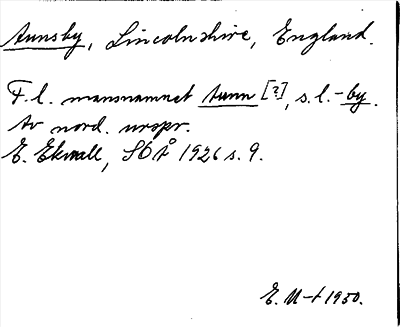 Aunsby, Lincolnshire, England.
F.l. mansnamnet Aunn [?], s.l. -by.
Av nord. urspr.
E. Ekwall, SOÅ 1926 s. 9.
E. M-t 1950.